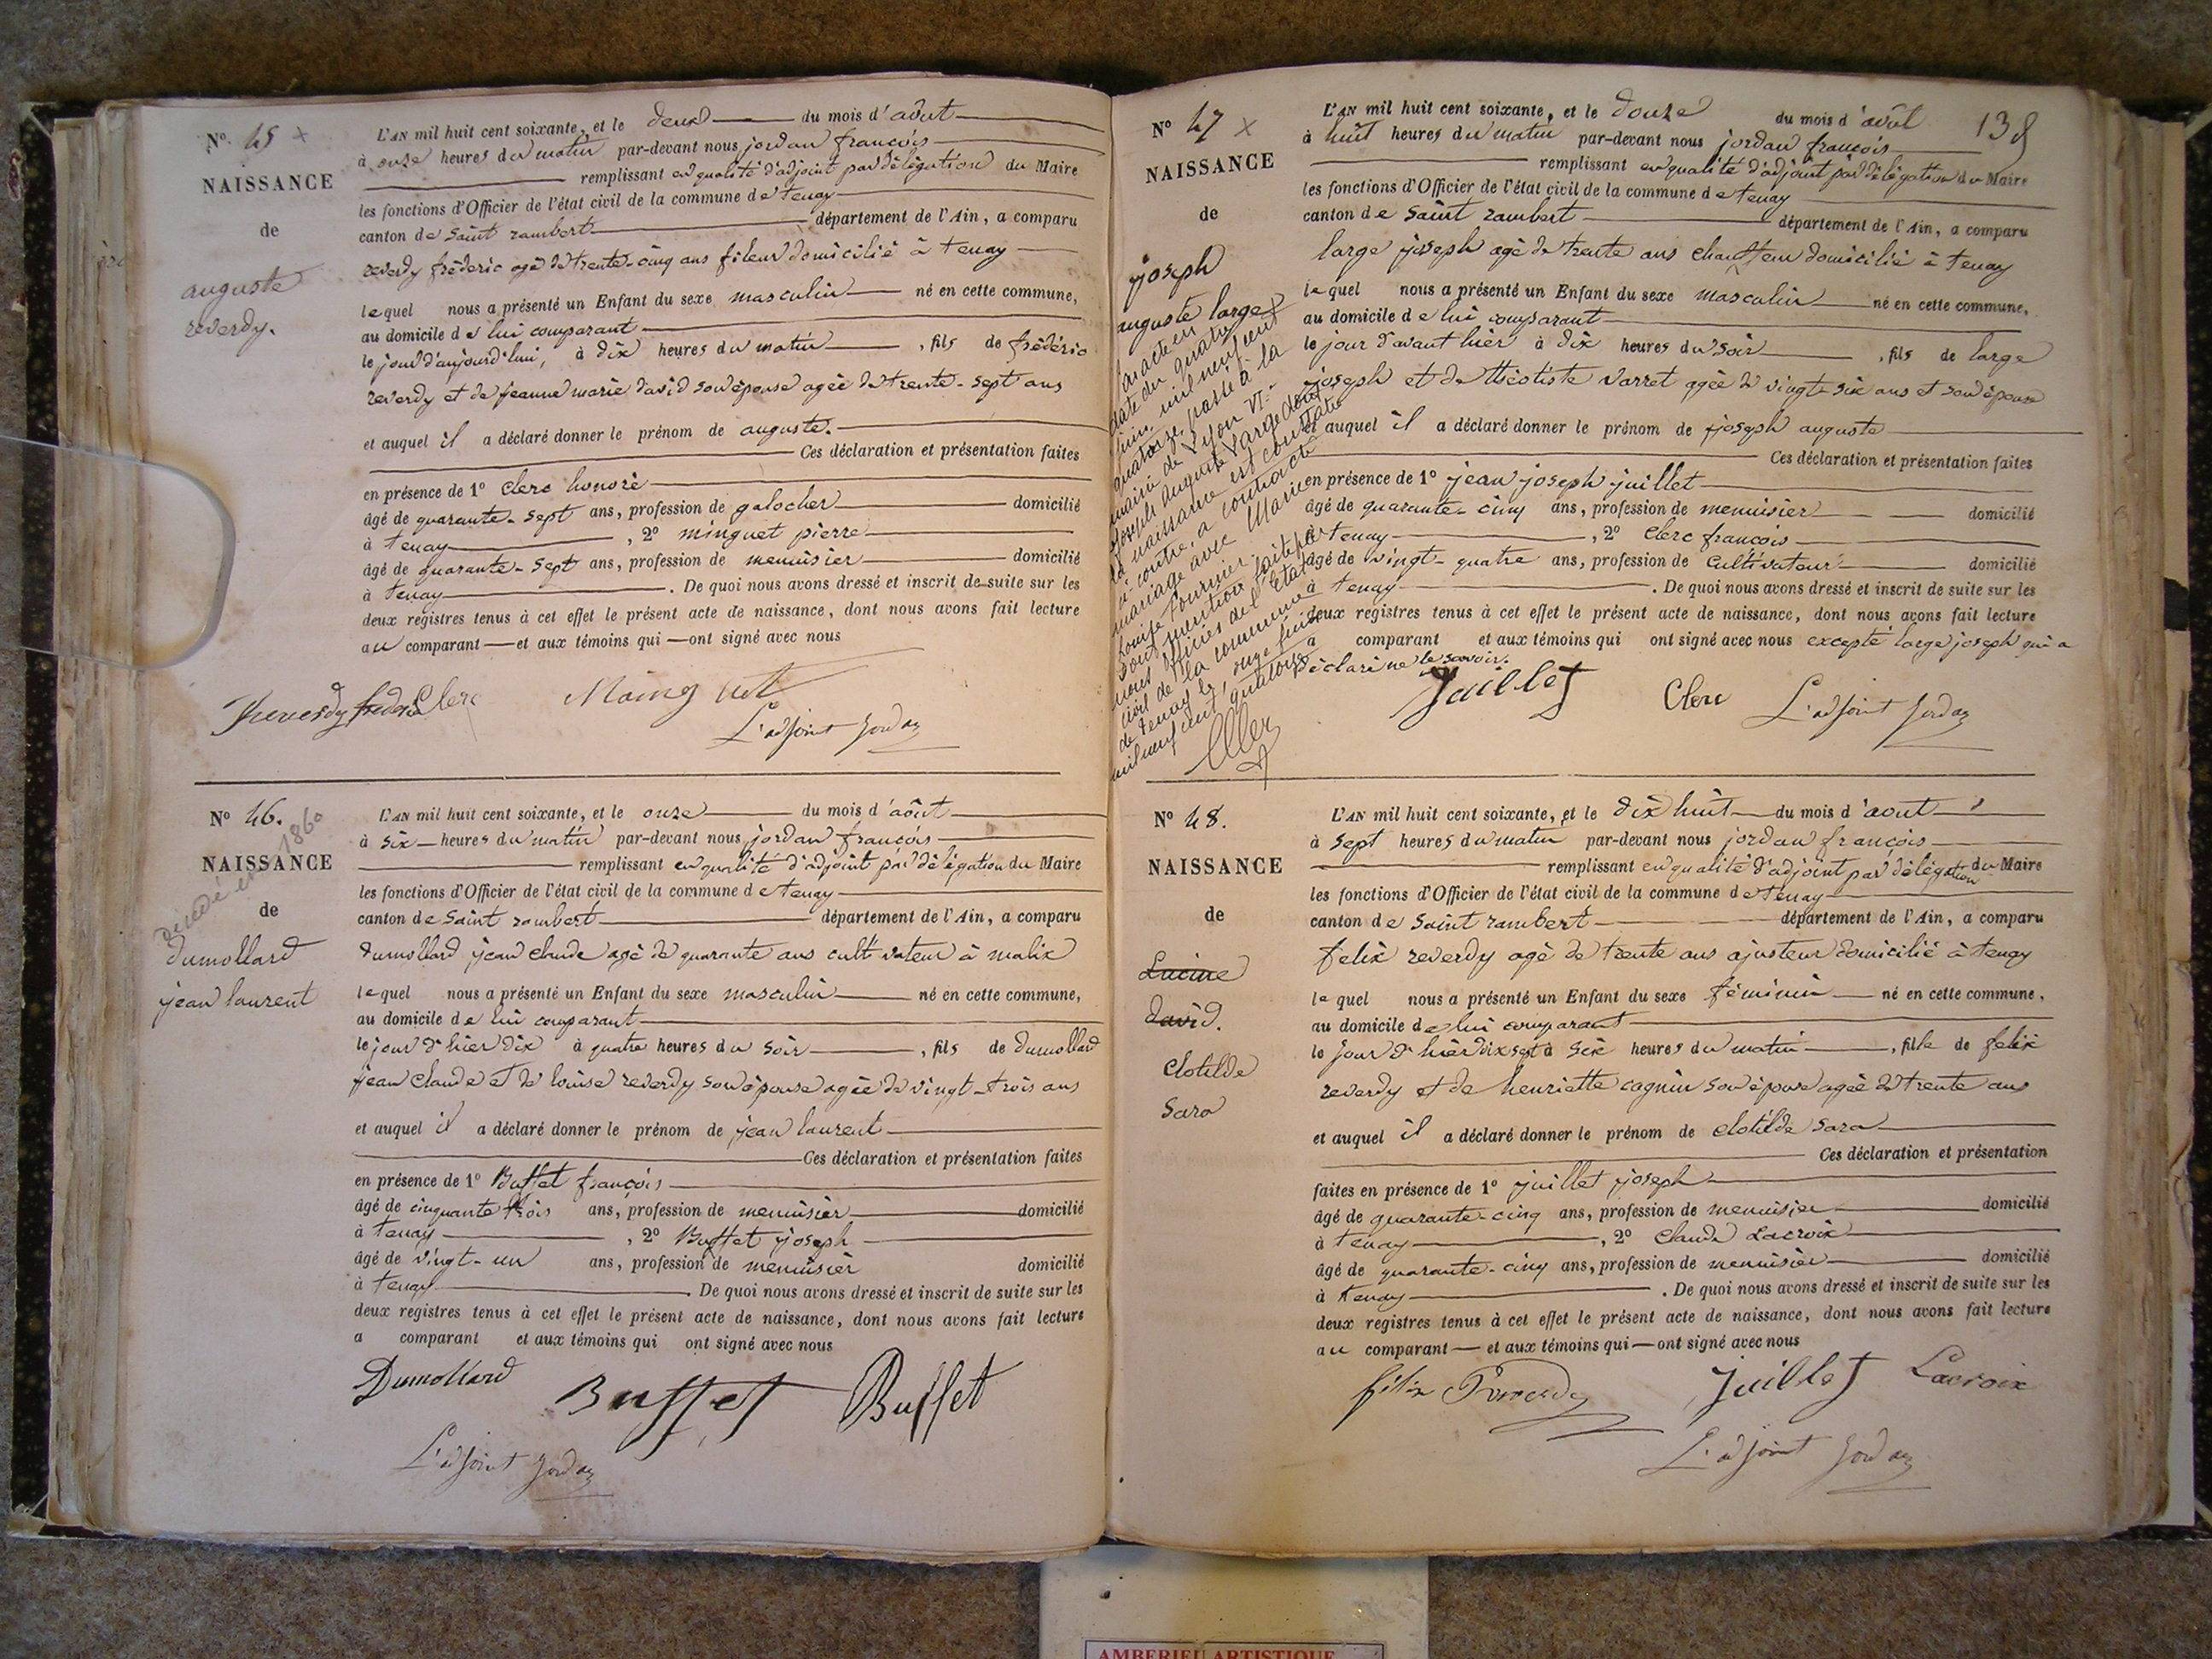 N° 45 x
NAISSANCE
de
auguste
reverdy.
L'AN mil huit cent soixante, et le deux du mois d'aout
à onze heures du matin par-devant nous jordan françois
remplissant en qualité d'adjoint par délégation du Maire
les fonctions d'Officier de l'état civil de la commune de tenay
canton de Saint rambert département de l'Ain, a comparu
reverdy fréderic agé de trente-cinq ans fileur domicilié à tenay
lequel nous a présenté un Enfant du sexe masculin né en cette commune,
au domicile de lui comparant
le jour d'aujourd'hui, à dix heures du matin, fils de frédéric
reverdy et de jeanne marie david son épouse agée de trente-sept ans
et auquel il a déclaré donner le prénom de auguste.
Ces déclaration et présentation faites
en présence de 1° Clerc honoré
âgé de quarante-sept ans, profession de galocher domicilié
à tenay, 2° minguet pierre
âgé de quarante-sept ans, profession de menuisier domicilié
à tenay. De quoi nous avons dressé et inscrit de suite sur les
deux registres tenus à cet effet le présent acte de naissance, dont nous avons fait lecture
au comparant et aux témoins qui ont signé avec nous
frederic Clerc
L'adjoint Jordan
N° 46.
NAISSANCE
de
décédé en 1860
dumollard
jean laurent
L'AN mil huit cent soixante, et le onze du mois d'août
à six heures du matin par-devant nous jordan françois
remplissant en qualité d'adjoint par délégation du Maire
les fonctions d'Officier de l'état civil de la commune de tenay
canton de Saint rambert département de l'Ain, a comparu
dumollard jean claude agé de quarante ans cultivateur à malix
lequel nous a présenté un Enfant du sexe masculin né en cette commune,
au domicile de lui comparant
le jour d'hier dix à quatre heures du soir, fils de dumollard
jean claude et de louise reverdy son épouse agée de vingt-trois ans
et auquel il a déclaré donner le prénom de jean laurent
Ces déclaration et présentation faites
en présence de 1° Buffet françois
âgé de cinquante trois ans, profession de menuisier domicilié
à tenay, 2° Buffet joseph
âgé de vingt-un ans, profession de menuisier domicilié
à tenay. De quoi nous avons dressé et inscrit de suite sur les
deux registres tenus à cet effet le présent acte de naissance, dont nous avons fait lecture
a comparant et aux témoins qui ont signé avec nous
Dumollard Buffet Buffet
L'adjoint Jordan
138
N° 47 x
NAISSANCE
de
joseph
auguste large
Par acte en
date du quatre
juin mil neuf cent
quatorze, passé à la
mairie de Lyon VI
Joseph Auguste Large dont
la naissance est constatée
ci contre, a contracté
mariage avec Marie
Louise Fournier
Dont mention faite par
nous officier de l'Etat
civil de la commune
de Tenay le onze juin
mil neuf cent quatorze
L'AN mil huit cent soixante, et le douze du mois d'août
à huit heures du matin par-devant nous jordan françois
remplissant en qualité d'adjoint par délégation du Maire
les fonctions d'Officier de l'état civil de la commune de tenay
canton de Saint rambert département de l'Ain, a comparu
large joseph agé de trente ans chauffeur domicilié à tenay
lequel nous a présenté un Enfant du sexe masculin né en cette commune,
au domicile de lui comparant
le jour d'avant hier à dix heures du soir, fils de large
joseph et de théotiste varret agée de vingt-six ans et son épouse
et auquel il a déclaré donner le prénom de joseph auguste
Ces déclaration et présentation faites
en présence de 1° jean joseph juillet
âgé de quarante-cinq ans, profession de menuisier domicilié
à tenay, 2° Clerc françois
âgé de vingt-quatre ans, profession de Cultivateur domicilié
à tenay. De quoi nous avons dressé et inscrit de suite sur les
deux registres tenus à cet effet le présent acte de naissance, dont nous avons fait lecture
a comparant et aux témoins qui ont signé avec nous excepté large joseph qui a
déclaré ne le savoir.
Juillet Clerc L'adjoint Jordan
N° 48.
NAISSANCE
de
Lucine
david.
Clotilde
Sara
L'AN mil huit cent soixante, et le dix huit du mois d'aout
à sept heures du matin par-devant nous jordan françois
remplissant en qualité d'adjoint par délégation du Maire
les fonctions d'Officier de l'état civil de la commune de tenay
canton de Saint rambert département de l'Ain, a comparu
felix reverdy agé de trente ans ajusteur domicilié à tenay
lequel nous a présenté un Enfant du sexe féminin né en cette commune,
au domicile de lui comparant
le jour d'hier dix sept à six heures du matin, fille de felix
reverdy et de henriette cognin son épouse agée de trente ans
et auquel il a déclaré donner le prénom de clotilde sara
Ces déclaration et présentation
faites en présence de 1° juillet joseph
âgé de quarante-cinq ans, profession de menuisier domicilié
à tenay, 2° Claude Lacroix
âgé de quarante-cinq ans, profession de menuisier domicilié
à tenay. De quoi nous avons dressé et inscrit de suite sur les
deux registres tenus à cet effet le présent acte de naissance, dont nous avons fait lecture
au comparant et aux témoins qui ont signé avec nous
félix Reverdy Juillet Lacroix
L'adjoint Jordan
AMBERIEU ARTISTIQUE